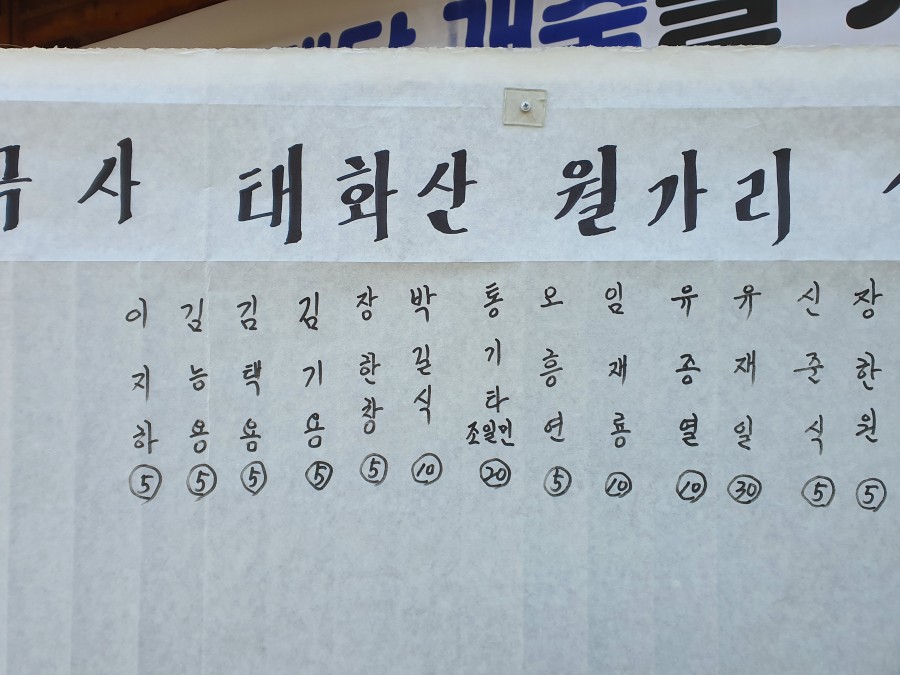 개축을
사 대화산 월가리
이지하 ⑤
김능용 ⑤
김택용 ⑤
김기용 ⑤
장한창 ⑤
박길식 ⑩
통기타 조일민 ⑳
오흥연 ⑤
임재룡 ⑩
유종열 ⑩
유재일 ㉚
신준식 ⑤
장한원 ⑤